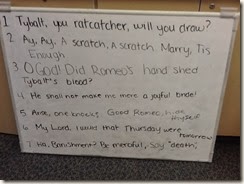 1 Tybalt, you ratcatcher, will you draw?
2. Ay, Ay, A scratch, A scratch, Marry, Tis
Enough
3 O God! Did Romeo's hand shed
Tybalt's blood?
4. He shall not make me there a joyful bride!
5. Arise, one knocks. Good Romeo, hide
thyself
6. My Lord, I would that Thursday were
tomorrow
7. Ha, Banishment? Be merciful, say "death"